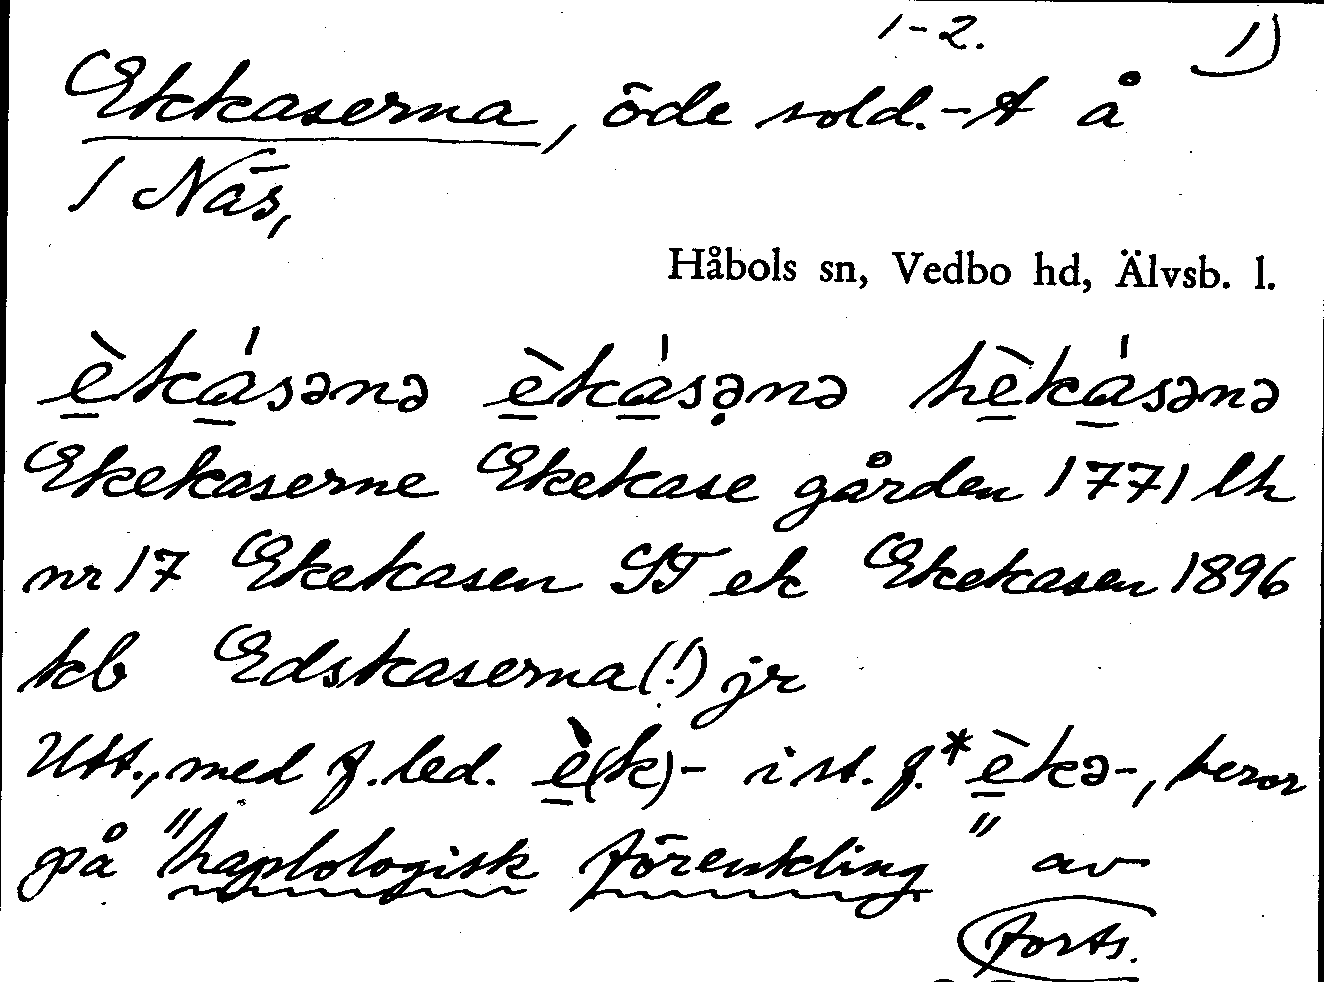 1-2. 1)
Ekkaserna, öde sold.-t å
1 Näs,
Håbols sn, Vedbo hd, Älvsb. l.
è̱ka̱̍sənə è̱ka̱̍sə̣nə hè̱ka̱̍sənə
Ekekaserne Ekekase gården 1771 lh
nr 17 Ekekasen ST ek Ekekasen 1896
kb Edskaserna(!) jr
Utt., med f.led. è̱(k)- i st. f. *è̱kə-, beror
på "haplologisk förenkling" av
forts.